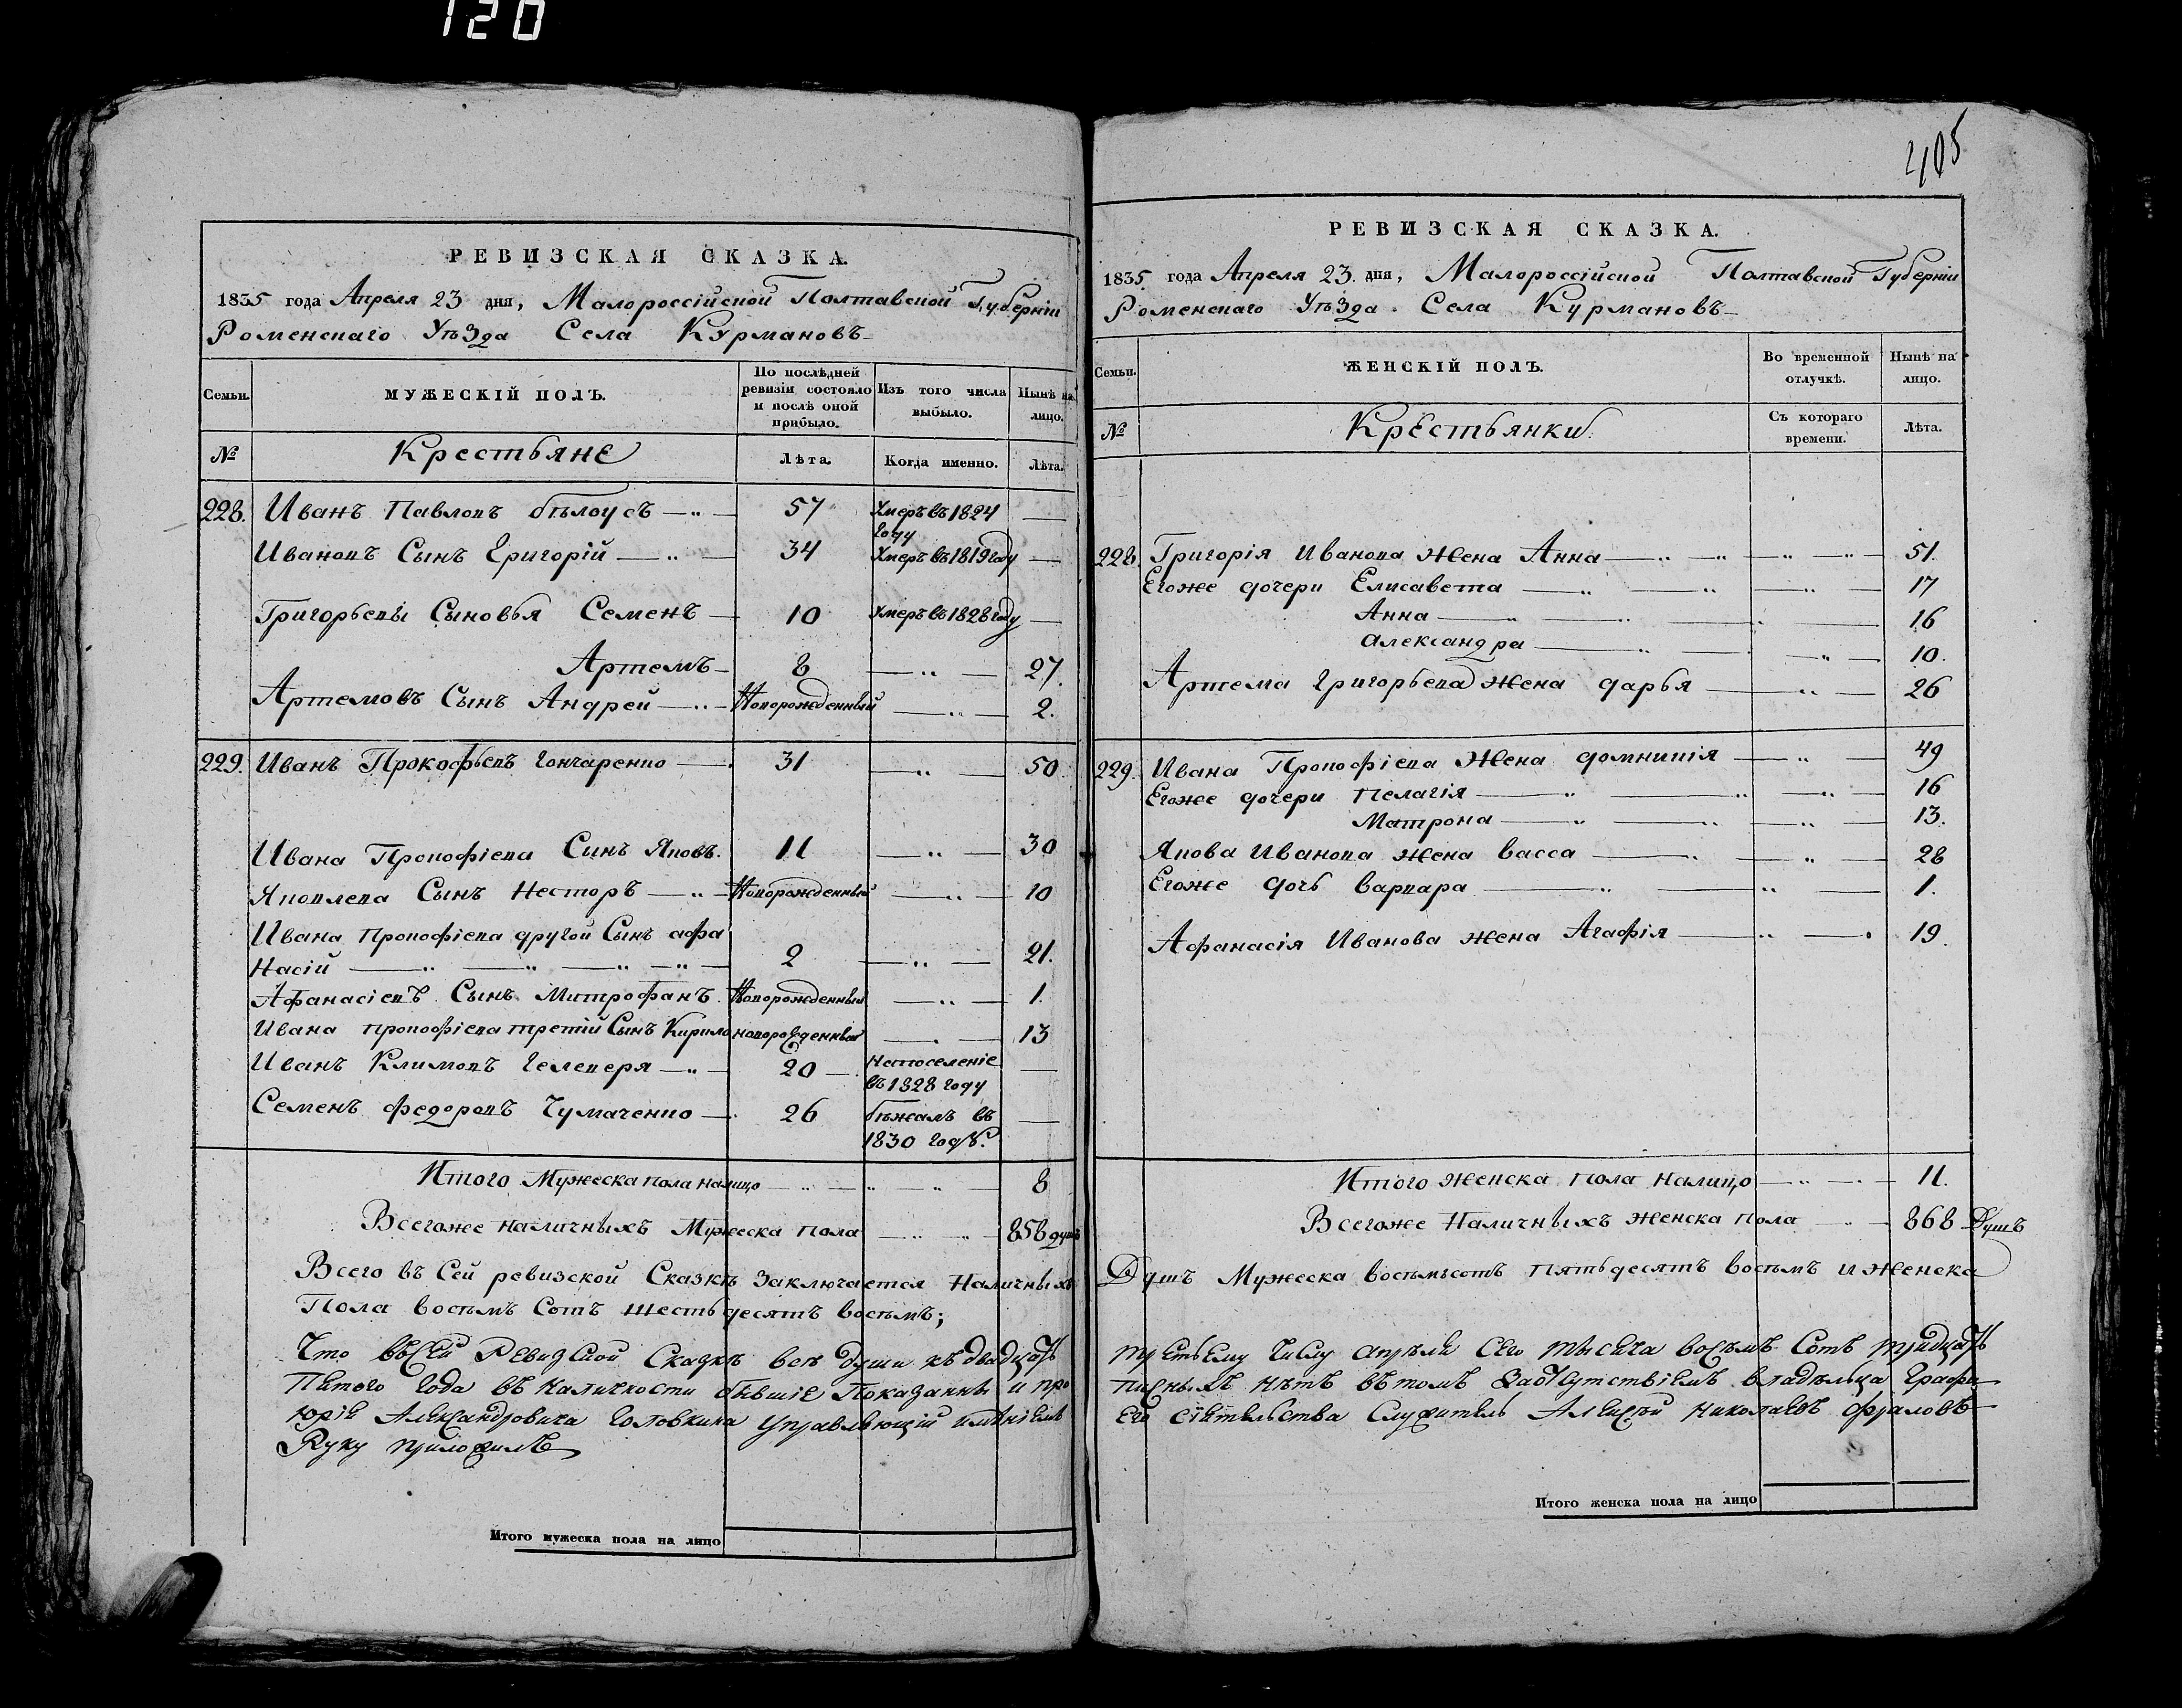 120
РЕВИЗСКАЯ СКАЗКА.
1835 года Апреля 23 дня, Малороссійской Полтавской Губерніи
Роменскаго Уѣзда Села Курмановъ
Семьи.
МУЖЕСКІЙ ПОЛЪ.
По послѣдней ревизіи состояло и послѣ оной прибыло.
Изъ того числа выбыло.
Нынѣ на лицо.
№
Крестьяне
Лѣта.
Когда именно.
Лѣта.
228. Иванъ Павловъ бѣлоусъ 57 Умеръ въ 1824 году
Ивановъ Сынъ Григорій 34 Умеръ въ 1819 году
Григорьевы Сыновья Семенъ 10 Умеръ въ 1828 году
Артемъ 8 27.
Артемовъ Сынъ Андрей Новорожденный 2.
229. Иванъ Прокофьевъ Гончаренко 31 50.
Ивана Прокофіева Сынъ Яковъ. 11 30
Яковлева Сынъ Несторъ Новорожденный 10
Ивана Прокофіева другой Сынъ афа
насій 2 21.
Афанасіевъ Сынъ Митрофанъ. Новорожденный 1.
Ивана прокофіева третій Сынъ Кирило новорожденный 13
Иванъ Климовъ Гелевера 20 На поселеніе
въ 1828 году
Семенъ федоровъ Чумаченко 26 бѣжалъ въ
1830 годѣ.
Итого Мужеска пола налицо 8
Всегоже наличныхъ Мужеска пола 858 душъ
Всего въ Сей ревизской Сказкѣ Заключается Наличныхъ
Пола восъмъ Сотъ шестьдесятъ восъмъ;
Что въ Сей Ревизской Сказкѣ всѣ души къ двадцать
Пятого года въ наличности бывшіе Показанны и про
Юрія Александровича Головкина Управляющій имѣніемъ
Руку приложилъ
Итого мужеска пола на лицо
405
РЕВИЗСКАЯ СКАЗКА.
1835. года Апреля 23. дня, Малороссійской Полтавской Губерніи
Роменскаго Уѣзда. Села Курмановъ
Семьи.
ЖЕНСКІЙ ПОЛЪ.
Во временной отлучкѣ.
Нынѣ на лицо.
№
Крестьянки.
Съ котораго времени.
Лѣта.
228. Григорія Иванова жена Анна 51.
Егоже дочери Елисавета 17
Анна 16
Александра 10.
Артема Григорьева жена дарья 26
229. Ивана Прокофіева Жена домникія 49
Егоже дочери Пелагія 16
Матрона 13.
Якова Иванова жена васса 28
Егоже дочь варвара 1.
Афанасія Иванова жена Агафія 19.
Итого Женска пола налицо 11.
Всегоже Наличныхъ женска пола 868 Душъ
Душъ Мужеска восъмъсотъ пятьдесятъ восъмъ и женска
третьему числу апрѣля сего тысяча восъмъ Сотъ тридцать
писныхъ нѣтъ вътомъ За владѣльца Графа
его Сіятельства Служитель Алексѣй Николаевъ фраловъ
Итого женска пола на лицо